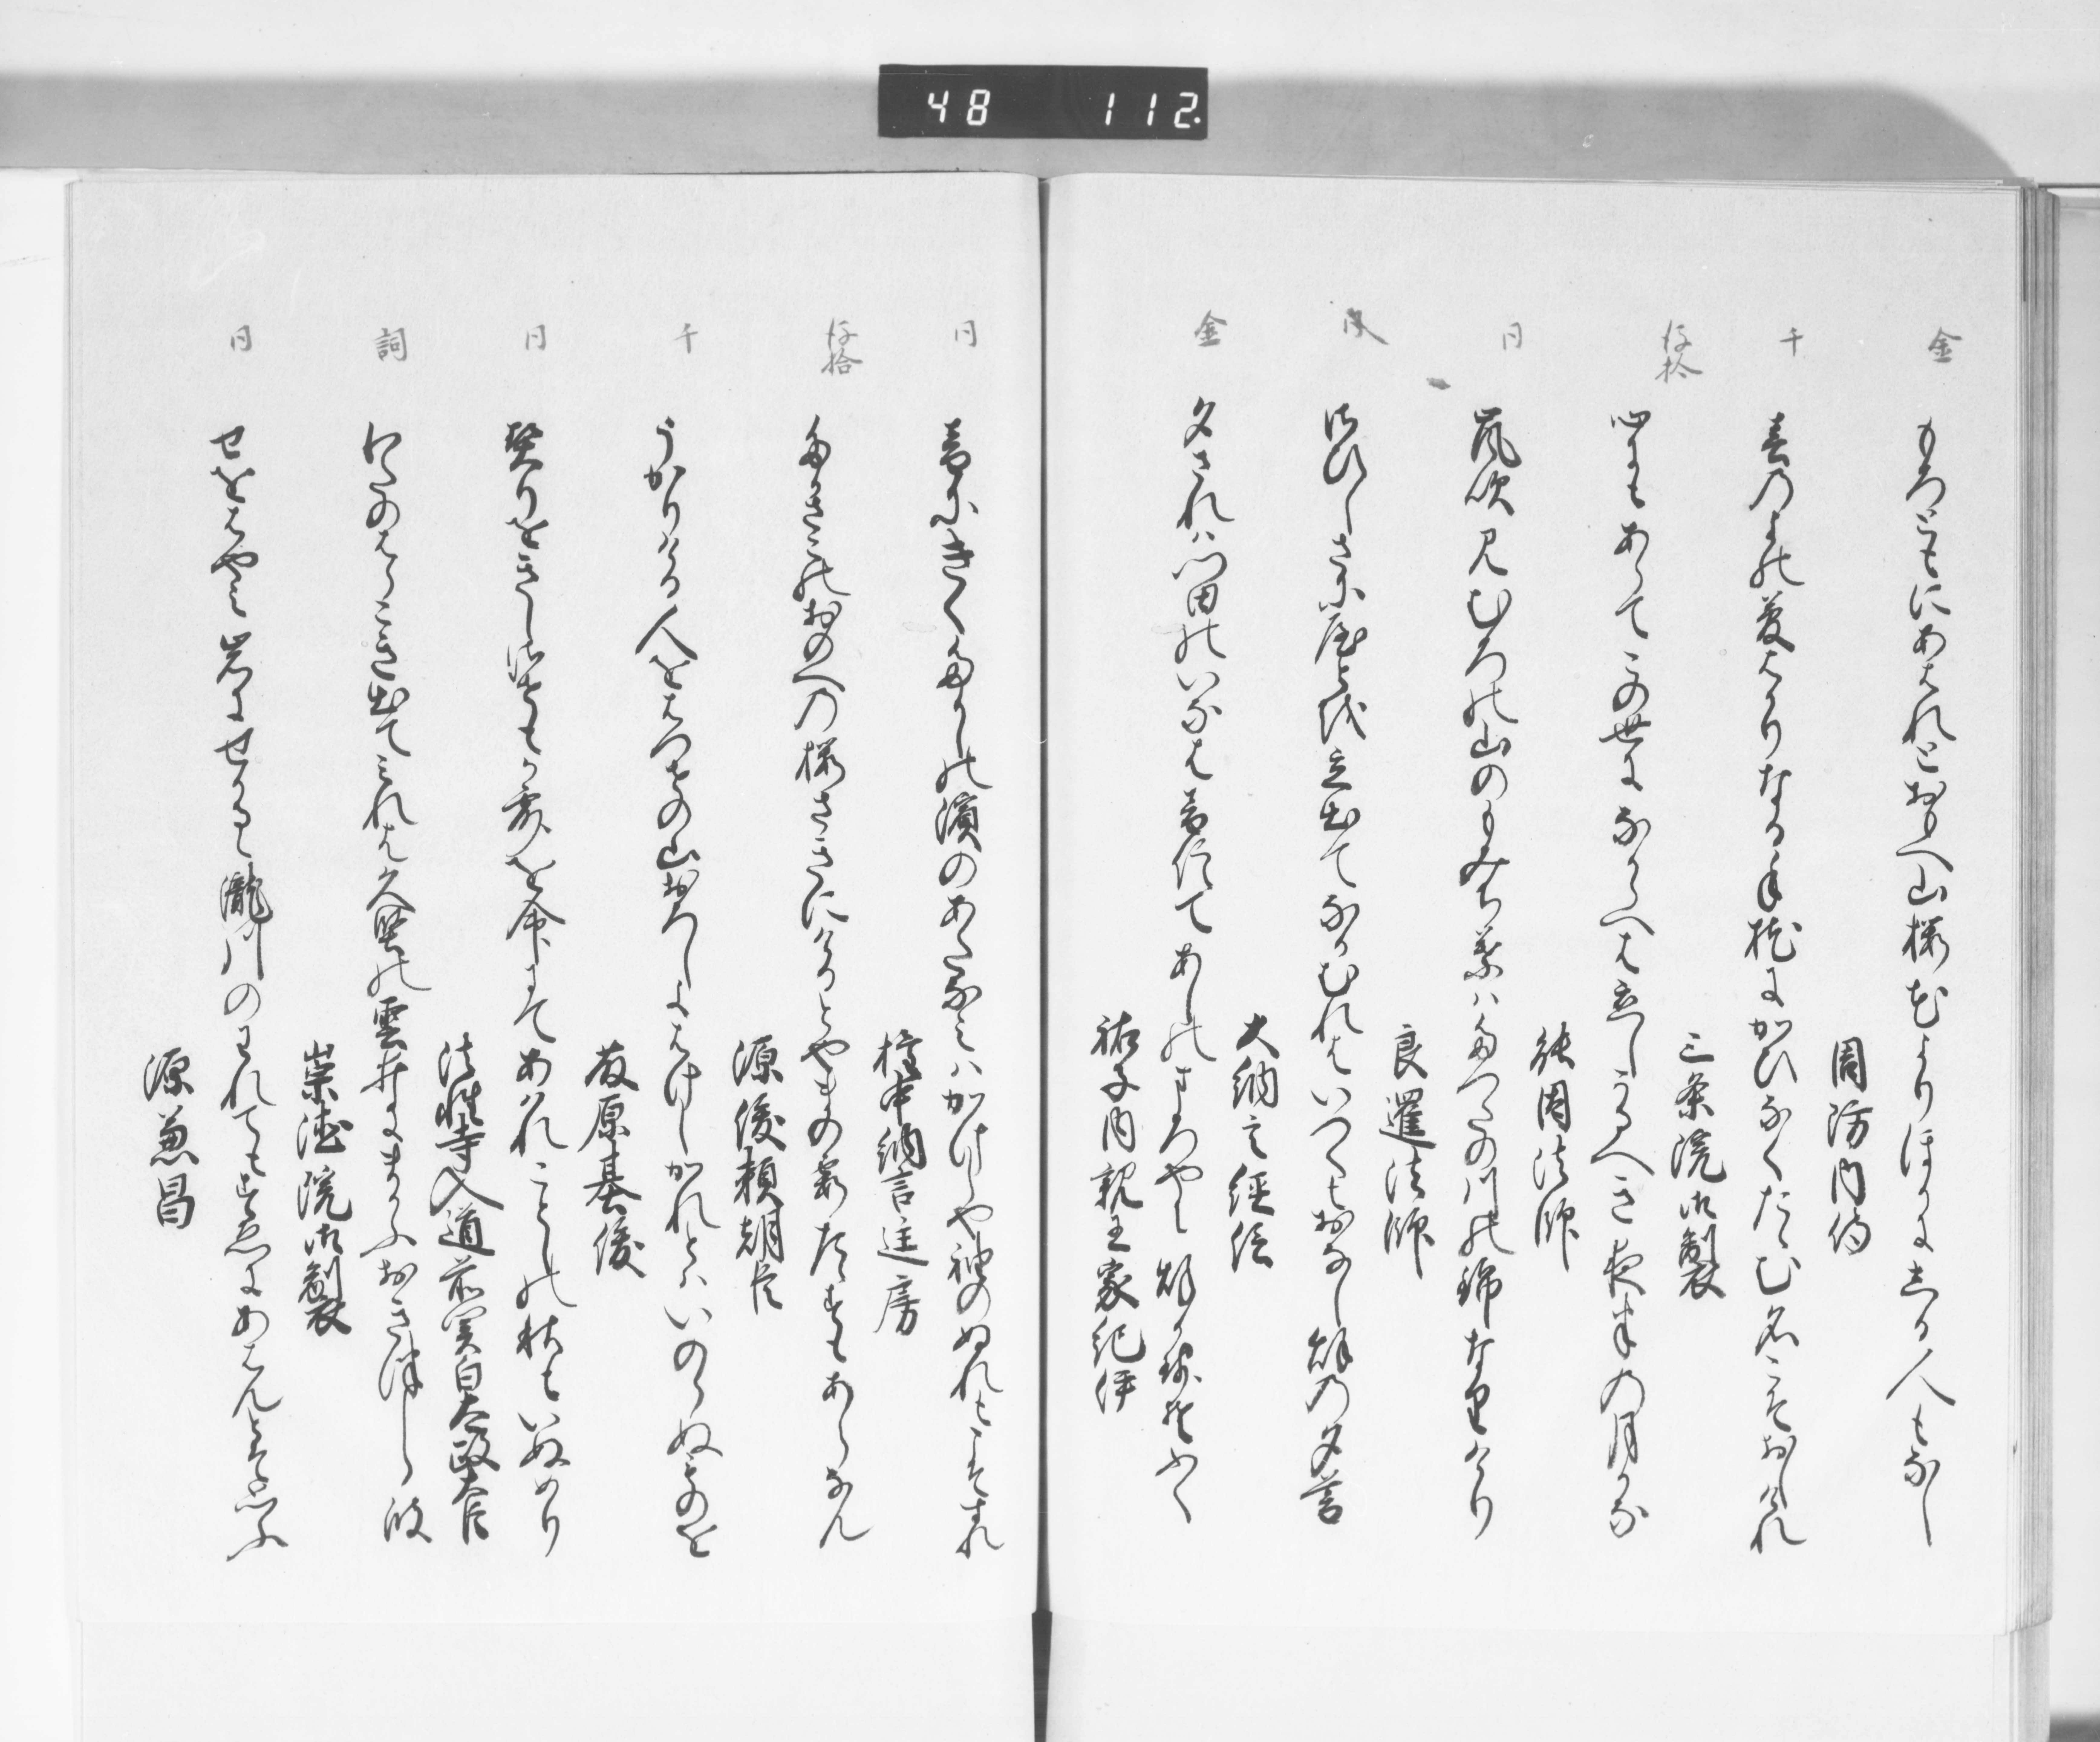 48 112.
金
もろともにあはれとおもへ山桜花よりほかにしる人もなし
周防内侍
千
春のよの夢はかりなる手枕にかひなくたゝむ名こそおしけれ
三条院御製
後拾
心にもあらてこの世になからへは恋しかるへき夜半の月かな
能因法師
同
嵐吹見むろの山のもみち葉はたつたの川の錦なりけり
良暹法師
さひしさに屋とを立出てなかむれはいつくもおなし秋の夕暮
大納言経信
金
夕されは門田のいなは音信てあしのまろやに秋風そふく
祐子内親王家紀伊
同
音にきくたかしの濱のあたなみはかけしや袖のぬれもこそすれ
権中納言匡房
後拾
たかさこのおのへの桜さきにけりとやまの霞たゝすもあらなん
源俊頼朝臣
千
うかりける人をはつせの山おろしよはけしかれとはいのらぬものを
藤原基俊
同
契りをきしさせもか露を命にてあはれことしの秋もいぬめり
法性寺入道前関白太政大臣
詞
わたのはらこき出てみれは久堅の雲井にまかふおきつしら波
崇徳院御製
同
せをはやみ岩にせかるゝ瀧川のわれてもすゑにあはんとそ思ふ
源兼昌